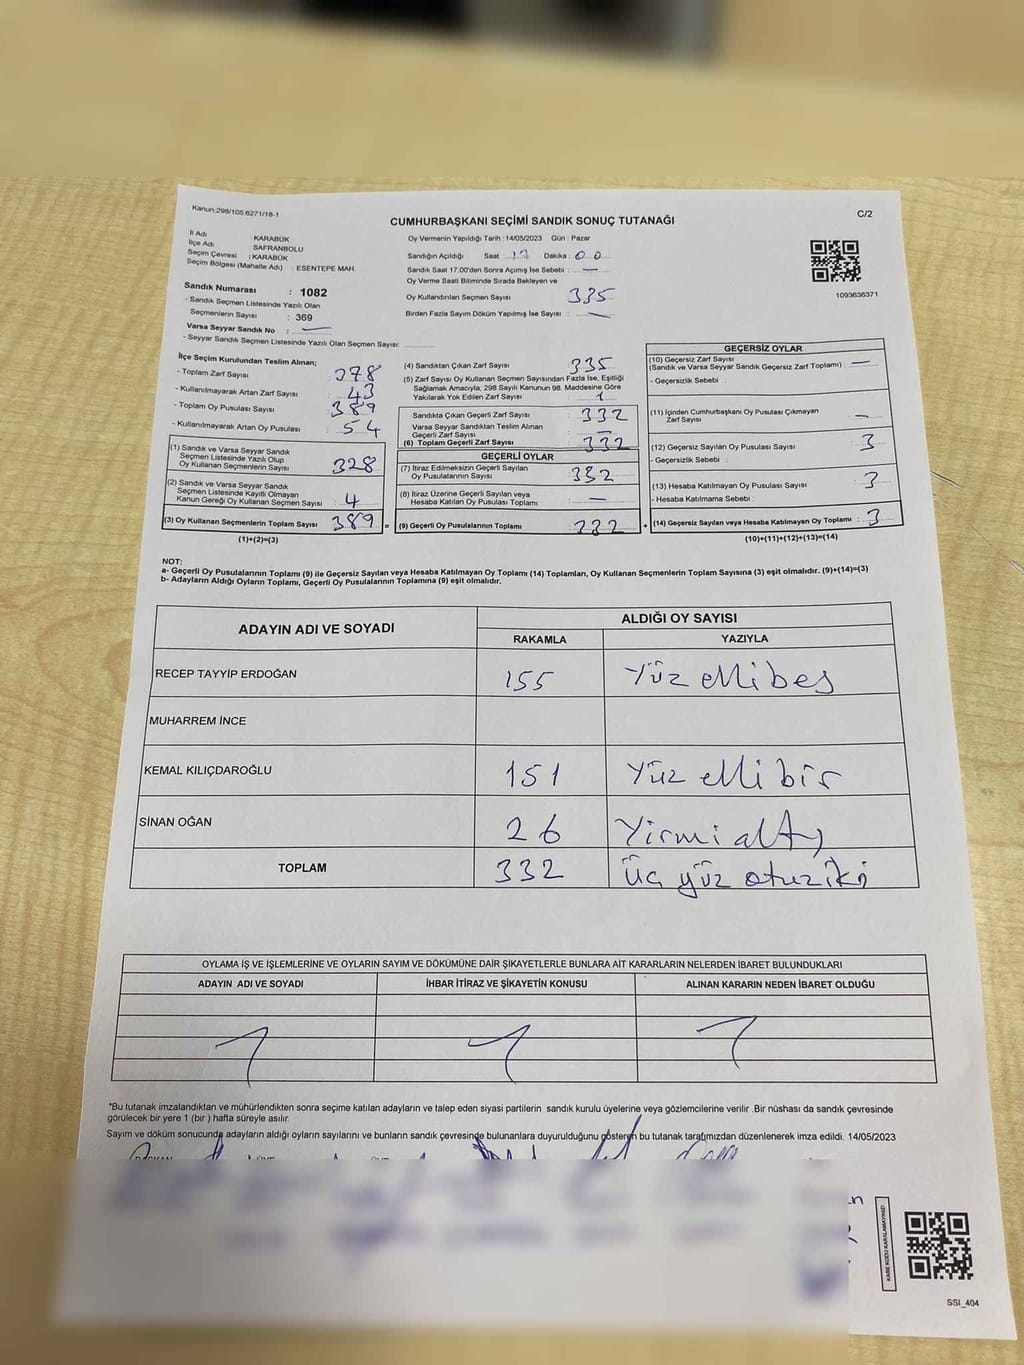 Kanun;298/105,6271/18-1
C/2
CUMHURBAŞKANI SEÇİMİ SANDIK SONUÇ TUTANAĞI
İl Adı KARABÜK
İlçe Adı SAFRANBOLU
Seçim Çevresi : KARABÜK
Seçim Bölgesi (Mahalle Adı) : ESENTEPE MAH.
Sandık Numarası : 1082
- Sandık Seçmen Listesinde Yazılı Olan
Seçmenlerin Sayısı : 369
Varsa Seyyar Sandık No : —
- Seyyar Sandık Seçmen Listesinde Yazılı Olan Seçmen Sayısı:
Oy Vermenin Yapıldığı Tarih : 14/05/2023 Gün : Pazar
Sandığın Açıldığı Saat : 17 Dakika : 00
Sandık Saat 17:00'den Sonra Açımış İse Sebebi : —
Oy Verme Saati Bitiminde Sırada Bekleyen ve
Oy Kullandırılan Seçmen Sayısı 335
Birden Fazla Sayım Döküm Yapılmış İse Sayısı : —
1093636371
İlçe Seçim Kurulundan Teslim Alınan;
- Toplam Zarf Sayısı : 378
- Kullanılmayarak Artan Zarf Sayısı : 43
- Toplam Oy Pusulası Sayısı : 389
- Kullanılmayarak Artan Oy Pusulası : 54
(1) Sandık ve Varsa Seyyar Sandık
Seçmen Listesinde Yazılı Olup
Oy Kullanan Seçmenlerin Sayısı 328
(2) Sandık ve Varsa Seyyar Sandık
Seçmen Listesinde Kayıtlı Olmayan
Kanun Gereği Oy Kullanan Seçmen Sayısı : 4
(3) Oy Kullanan Seçmenlerin Toplam Sayısı : 389 =
(1)+(2)=(3)
(4) Sandıktan Çıkan Zarf Sayısı : 335
(5) Zarf Sayısı Oy Kullanan Seçmen Sayısından Fazla İse, Eşitliği
Sağlamak Amacıyla; 298 Sayılı Kanunun 98. Maddesine Göre
Yakılarak Yok Edilen Zarf Sayısı :
Sandıkta Çıkan Geçerli Zarf Sayısı : 332
Varsa Seyyar Sandıktan Teslim Alınan
Geçerli Zarf Sayısı : —
(6) Toplam Geçerli Zarf Sayısı : 332
GEÇERLİ OYLAR
(7) İtiraz Edilmeksizin Geçerli Sayılan
Oy Pusulalarının Sayısı : 332
(8) İtiraz Üzerine Geçerli Sayılan veya
Hesaba Katılan Oy Pusulası Toplamı : —
(9) Geçerli Oy Pusulalarının Toplamı : 332 +
GEÇERSİZ OYLAR
(10) Geçersiz Zarf Sayısı
(Sandık ve Varsa Seyyar Sandık Geçersiz Zarf Toplamı) : —
- Geçersizlik Sebebi :
(11) İçinden Cumhurbaşkanı Oy Pusulası Çıkmayan
Zarf Sayısı : —
(12) Geçersiz Sayılan Oy Pusulası Sayısı : 3
- Geçersizlik Sebebi :
(13) Hesaba Katılmayan Oy Pusulası Sayısı : 3
- Hesaba Katılmama Sebebi :
(14) Geçersiz Sayılan veya Hesaba Katılmayan Oy Toplamı : 3
(10)+(11)+(12)+(13)=(14)
NOT:
a- Geçerli Oy Pusulalarının Toplamı (9) ile Geçersiz Sayılan veya Hesaba Katılmayan Oy Toplamı (14) Toplamları, Oy Kullanan Seçmenlerin Toplam Sayısına (3) eşit olmalıdır. (9)+(14)=(3)
b- Adayların Aldığı Oyların Toplamı, Geçerli Oy Pusulalarının Toplamına (9) eşit olmalıdır.
ADAYIN ADI VE SOYADI ALDIĞI OY SAYISI
RAKAMLA YAZIYLA
RECEP TAYYİP ERDOĞAN 155 Yüz ellibeş
MUHARREM İNCE
KEMAL KILIÇDAROĞLU 151 Yüz ellibir
SİNAN OĞAN 26 Yirmialtı
TOPLAM 332 Üç yüz otuziki
OYLAMA İŞ VE İŞLEMLERİNE VE OYLARIN SAYIM VE DÖKÜMÜNE DAİR ŞİKAYETLERLE BUNLARA AİT KARARLARIN NELERDEN İBARET BULUNDUKLARI
ADAYIN ADI VE SOYADI İHBAR İTİRAZ VE ŞİKAYETİN KONUSU ALINAN KARARIN NEDEN İBARET OLDUĞU
*Bu tutanak imzalandıktan ve mühürlendikten sonra seçime katılan adayların ve talep eden siyasi partilerin sandık kurulu üyelerine veya gözlemcilerine verilir .Bir nüshası da sandık çevresinde
görülecek bir yere 1 (bir ) hafta süreyle asılır.
Sayım ve döküm sonucunda adayların aldığı oyların sayılarını ve bunların sandık çevresinde bulunanlara duyurulduğunu gösteren bu tutanak tarafımızdan düzenlenerek imza edildi. 14/05/2023
KARE KODU KARALAMAYINIZ!
SSI_404